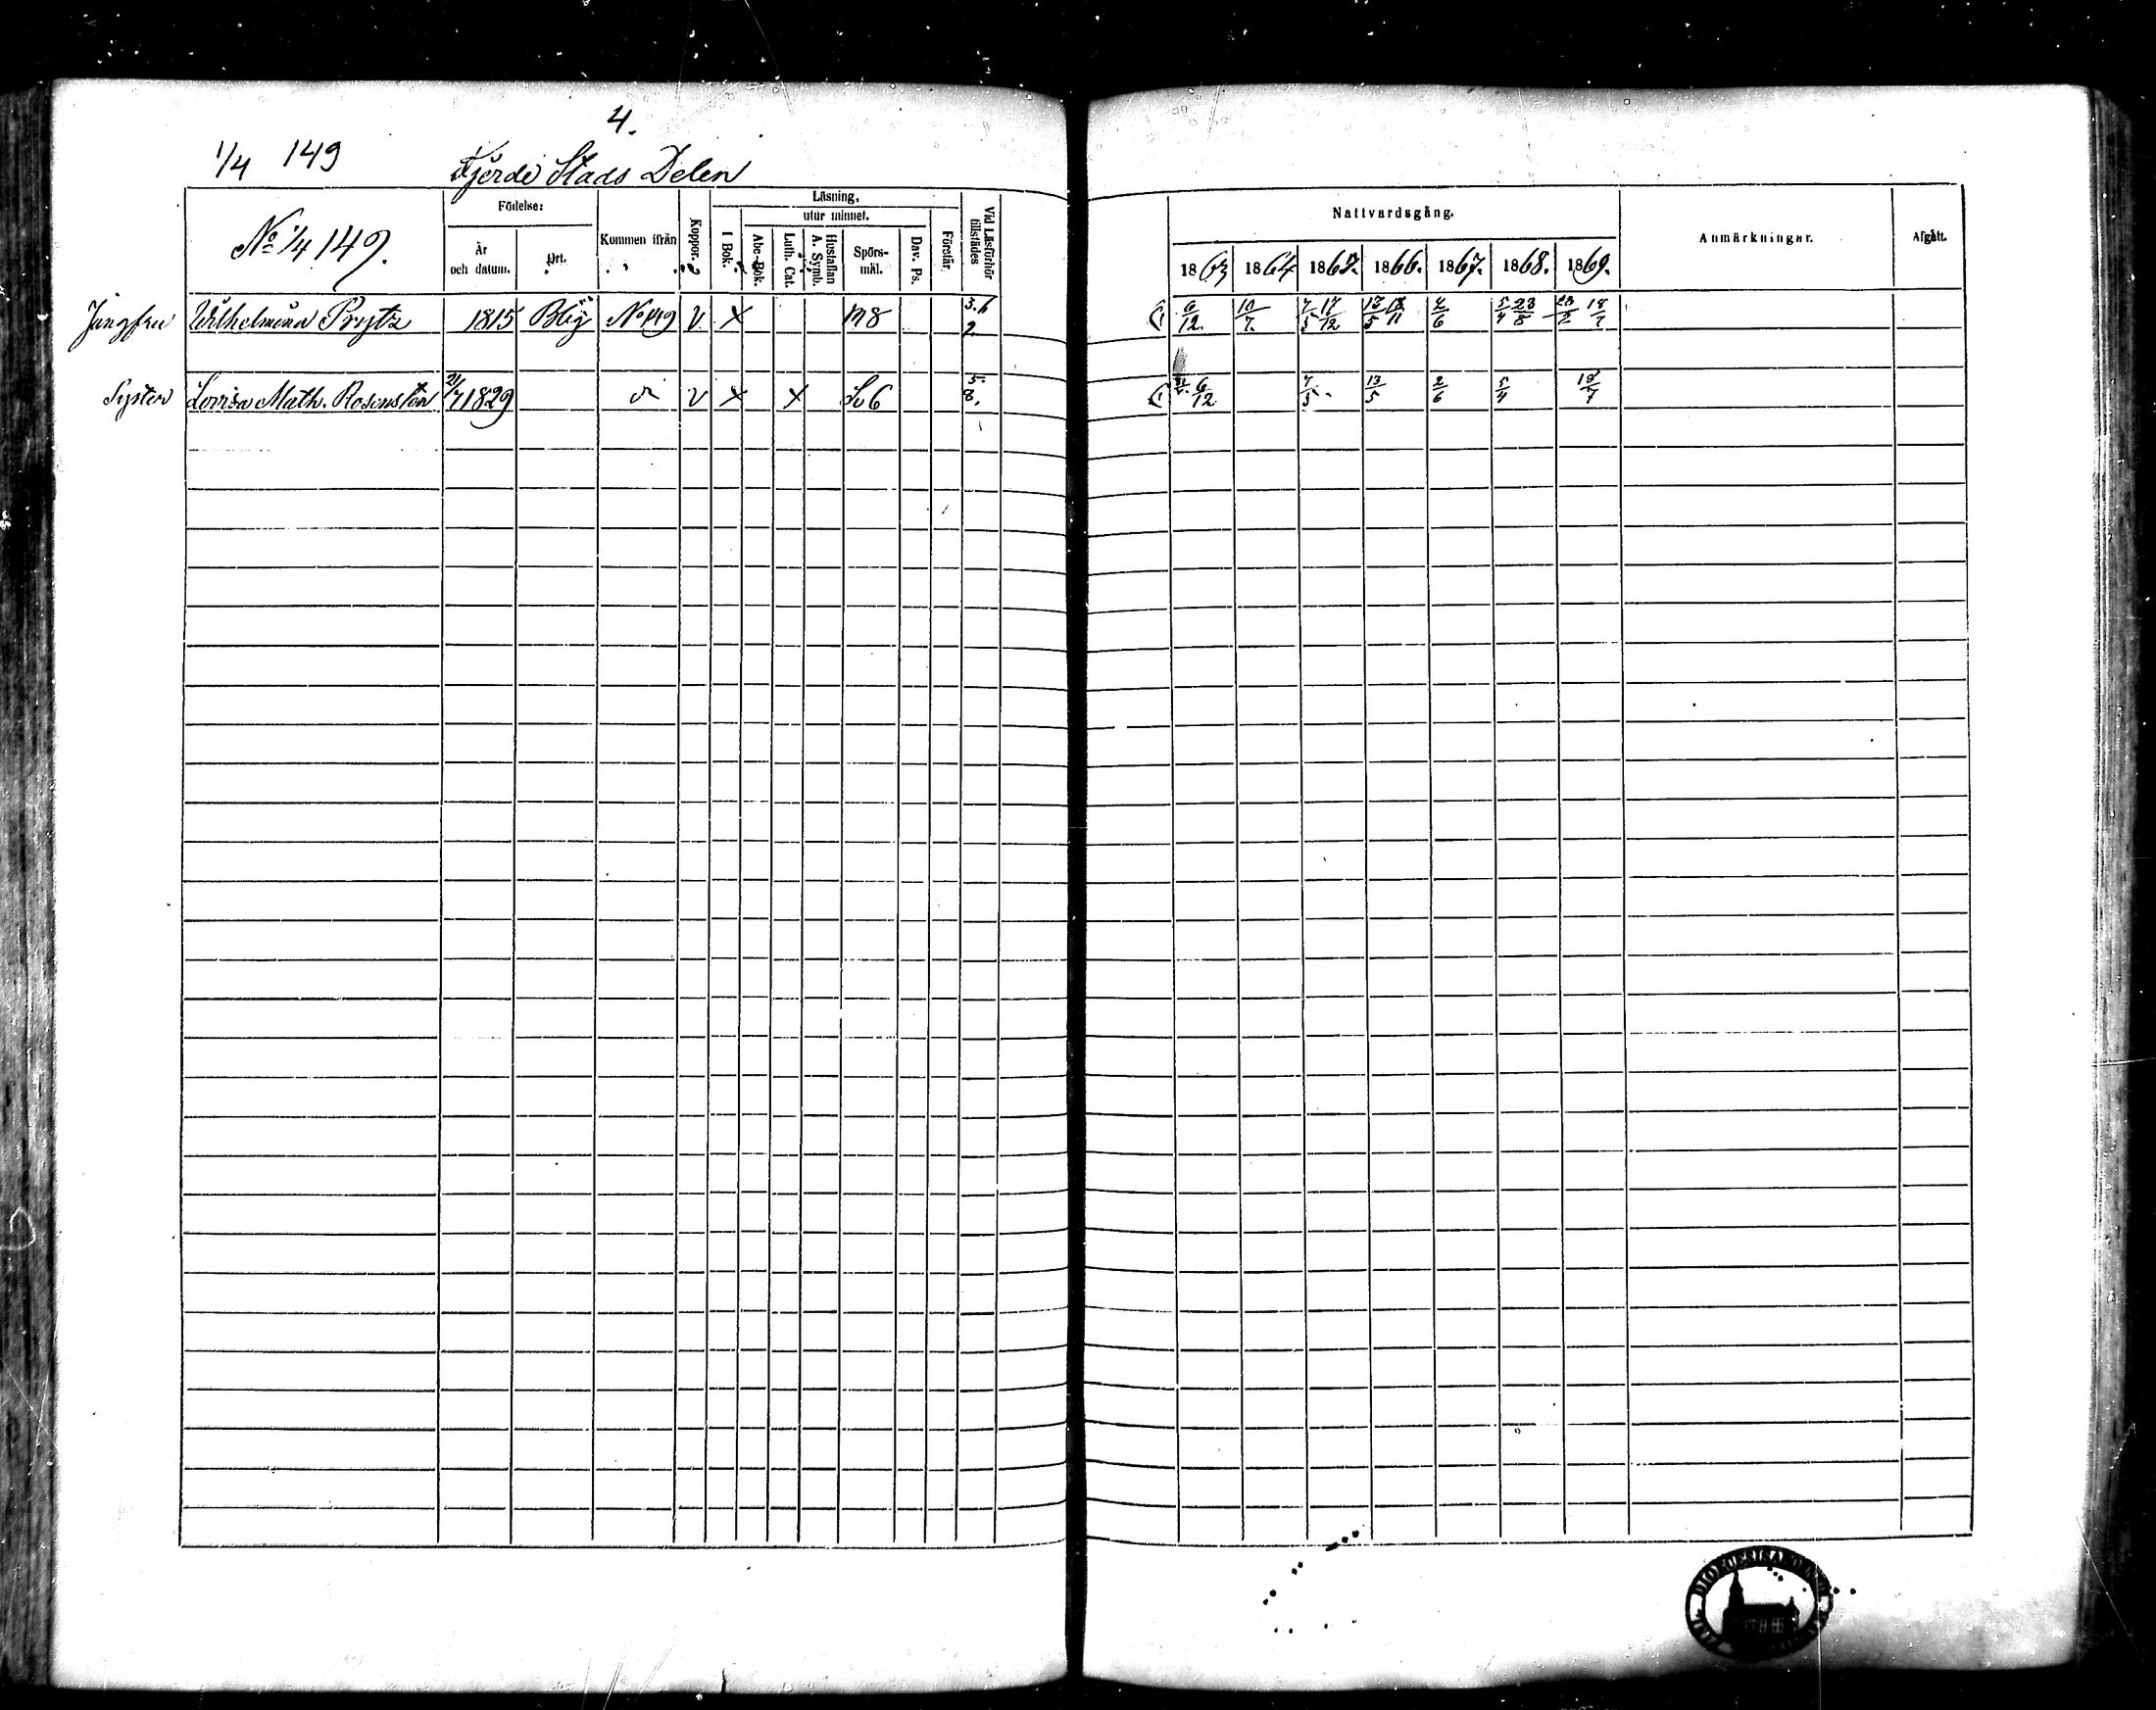 4.
1/4 149 Fjerde Stads Delen
No 1/4 149.
Födelse:
År och datum.
Ort.
Kommen ifrån
Koppor.
Läsning,
I Bok.
utur minnet.
Abc-Bok.
Luth. Cat.
Hustaflan A. Symb.
Spörsmål.
Dav. Ps.
Förstår
Vid Läsförhör tillstädes
Nattvardsgång.
1863 1864 1865. 1866. 1867. 1868. 1869.
Anmärkningar.
Afgått.
Jungfru Wilhelmina Prytz 1815 No 149 v x 3.6 2. 6/12. 10/7. 7/5 17/12 13/5 18/11 2/6 5/4 23/8 18/7
Syster Lovisa Math. 21/7 1829 v x x 6 5 8. 6/12 7/5 13/5 2/6 5/4 18/7